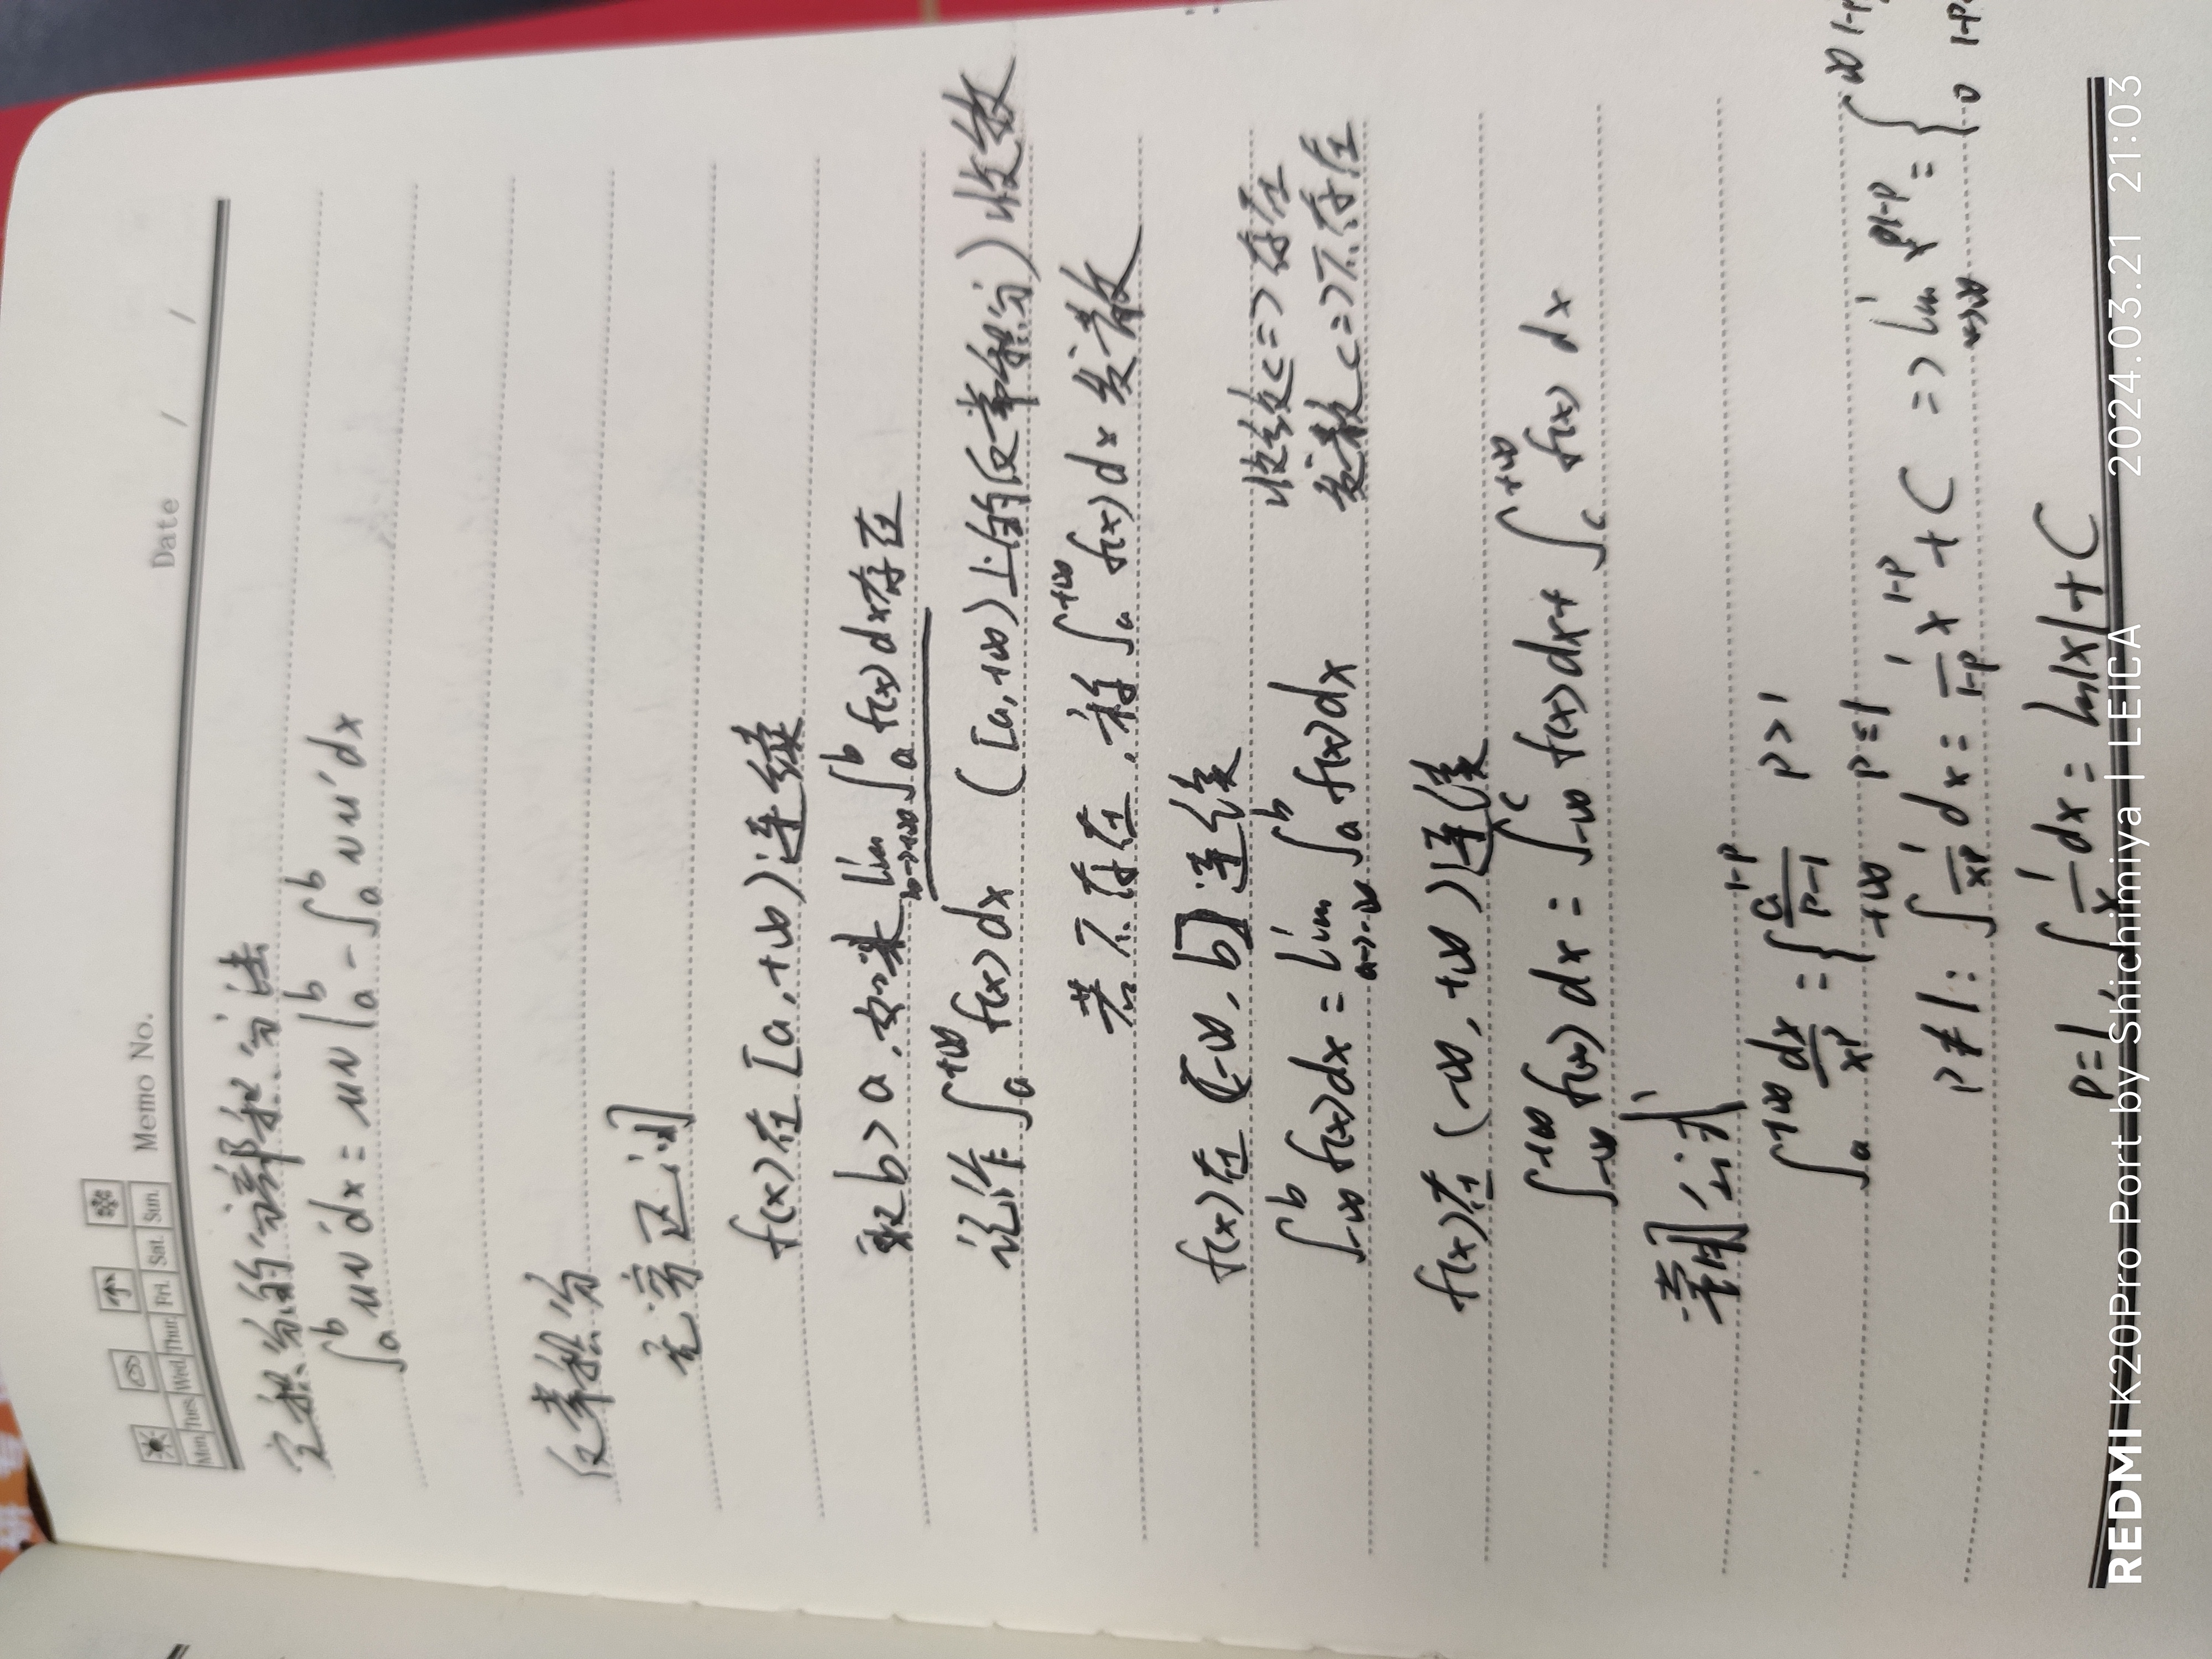 Mon. Tues. Wed. Thur. Fri. Sat. Sun. Memo No. Date / /
定积分的分部积分法
∫_a^b uv'dx = uv|_a^b - ∫_a^b vu'dx
反常积分
无穷区间
f(x)在[a,+∞)连续
取b>a,如果 lim_{b->+∞} ∫_a^b f(x)dx存在
记作 ∫_a^{+∞} f(x)dx ([a,+∞)上的反常积分)收敛
若不存在,称∫_a^{+∞} f(x)dx发散
f(x)在(-∞,b]连续
收敛<=>存在
∫_{-∞}^b f(x)dx = lim_{a->-∞} ∫_a^b f(x)dx
发散<=>不存在
f(x)在(-∞,+∞)连续
∫_{-∞}^{+∞} f(x)dx = ∫_{-∞}^c f(x)dx + ∫_c^{+∞} f(x)dx
常用公式
∫_a^{+∞} dx/x^p = { a^{1-p}/(p-1) p>1
+∞ p=1
p≠1: ∫ 1/x^p dx = 1/(1-p) x^{1-p} + C => lim_{x->∞} x^{1-p} = { ∞ 1-p
0 1-p
p=1, ∫ 1/x dx = ln|x| + C
REDMI K20Pro Port by Shichimiya | LEICA 2024.03.21 21:03